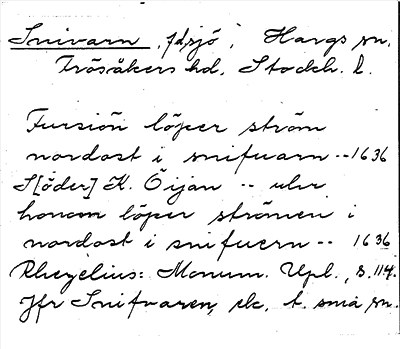 Snivarn, fd, sjö, Havgs sn.
Frösåkers hd, Stockh. l.
Fursiön löper ström
nordost i snifuarn -- 1636
S[öder] K. Öijan -- uhr
honom löper strömen i
nordost i snifuern -- 1636
Rhezelius: Monum. Upl., s. 114.
Jfr Snifvaren, ek, t. små sn.